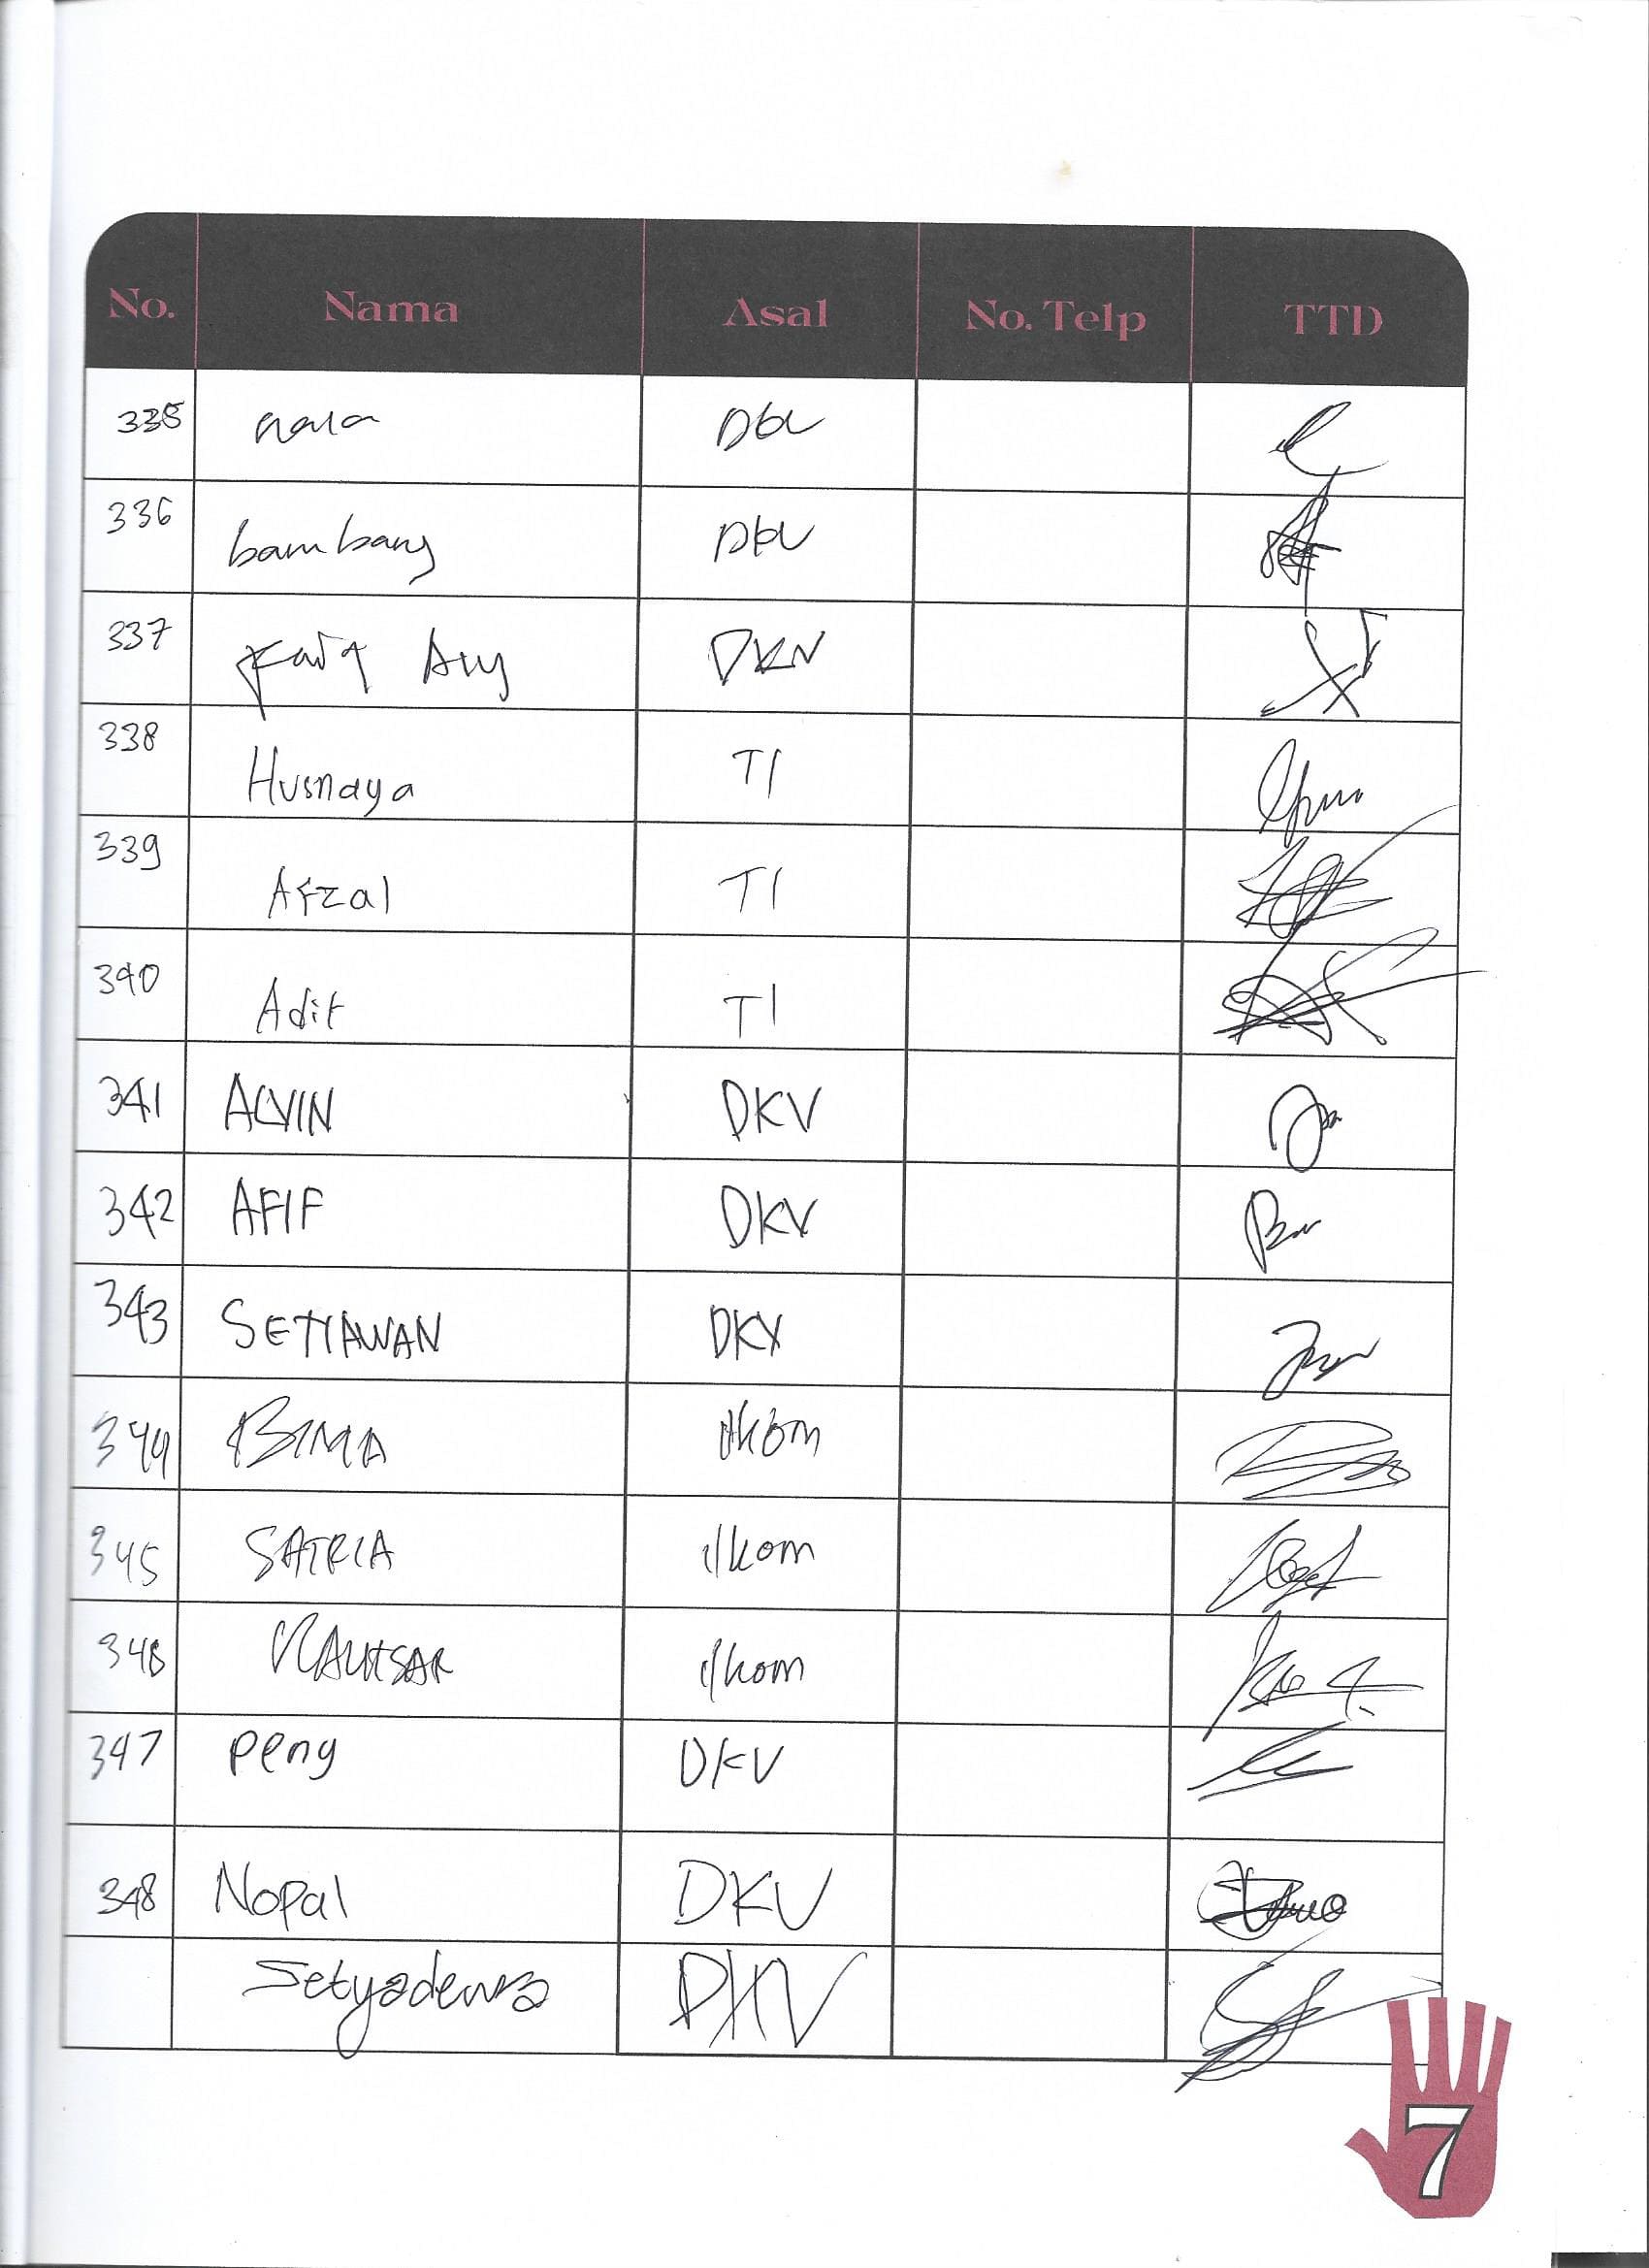 No. Nama Asal No. Telp TTD
335 nala DKV
336 bambang DKV
337 DKV
338 Husnaya TI
339 Afzal TI
340 Adit TI
341 ALVIN DKV
342 AFIF DKV
343 SETIAWAN DKV
344 BIMA Ilkom
345 SATRIA ilkom
346 KAUTSAR ilkom
347 Peng DKV
348 Nopal DKV
Setyadewa DKV
7